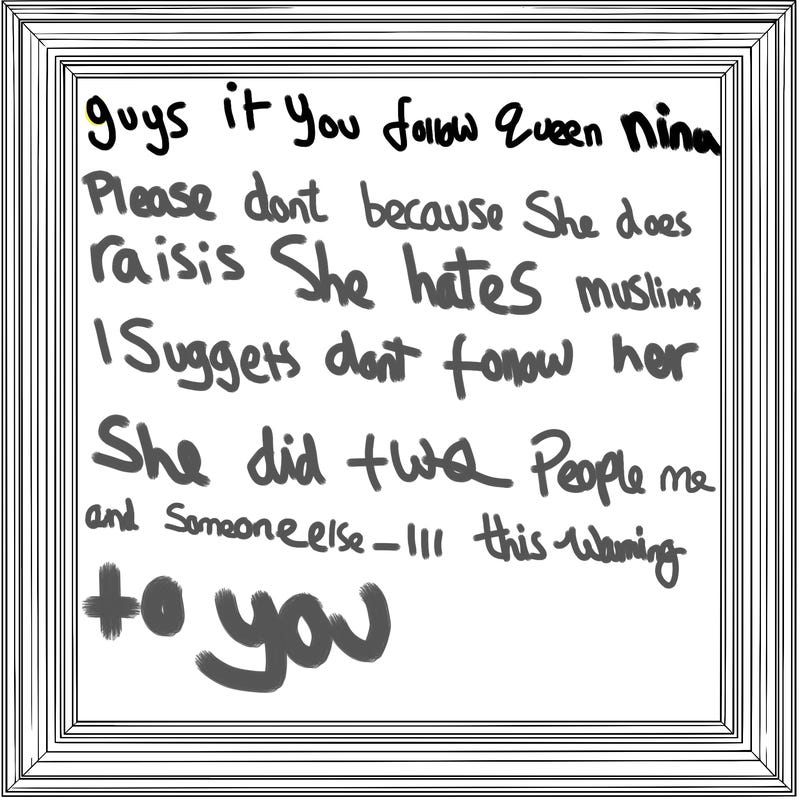 guys it you follow Queen nina
Please dont because She does
raisis She hates muslims
I Suggets dont follow her
She did two People me
and Someone else _ III this Warning
to you